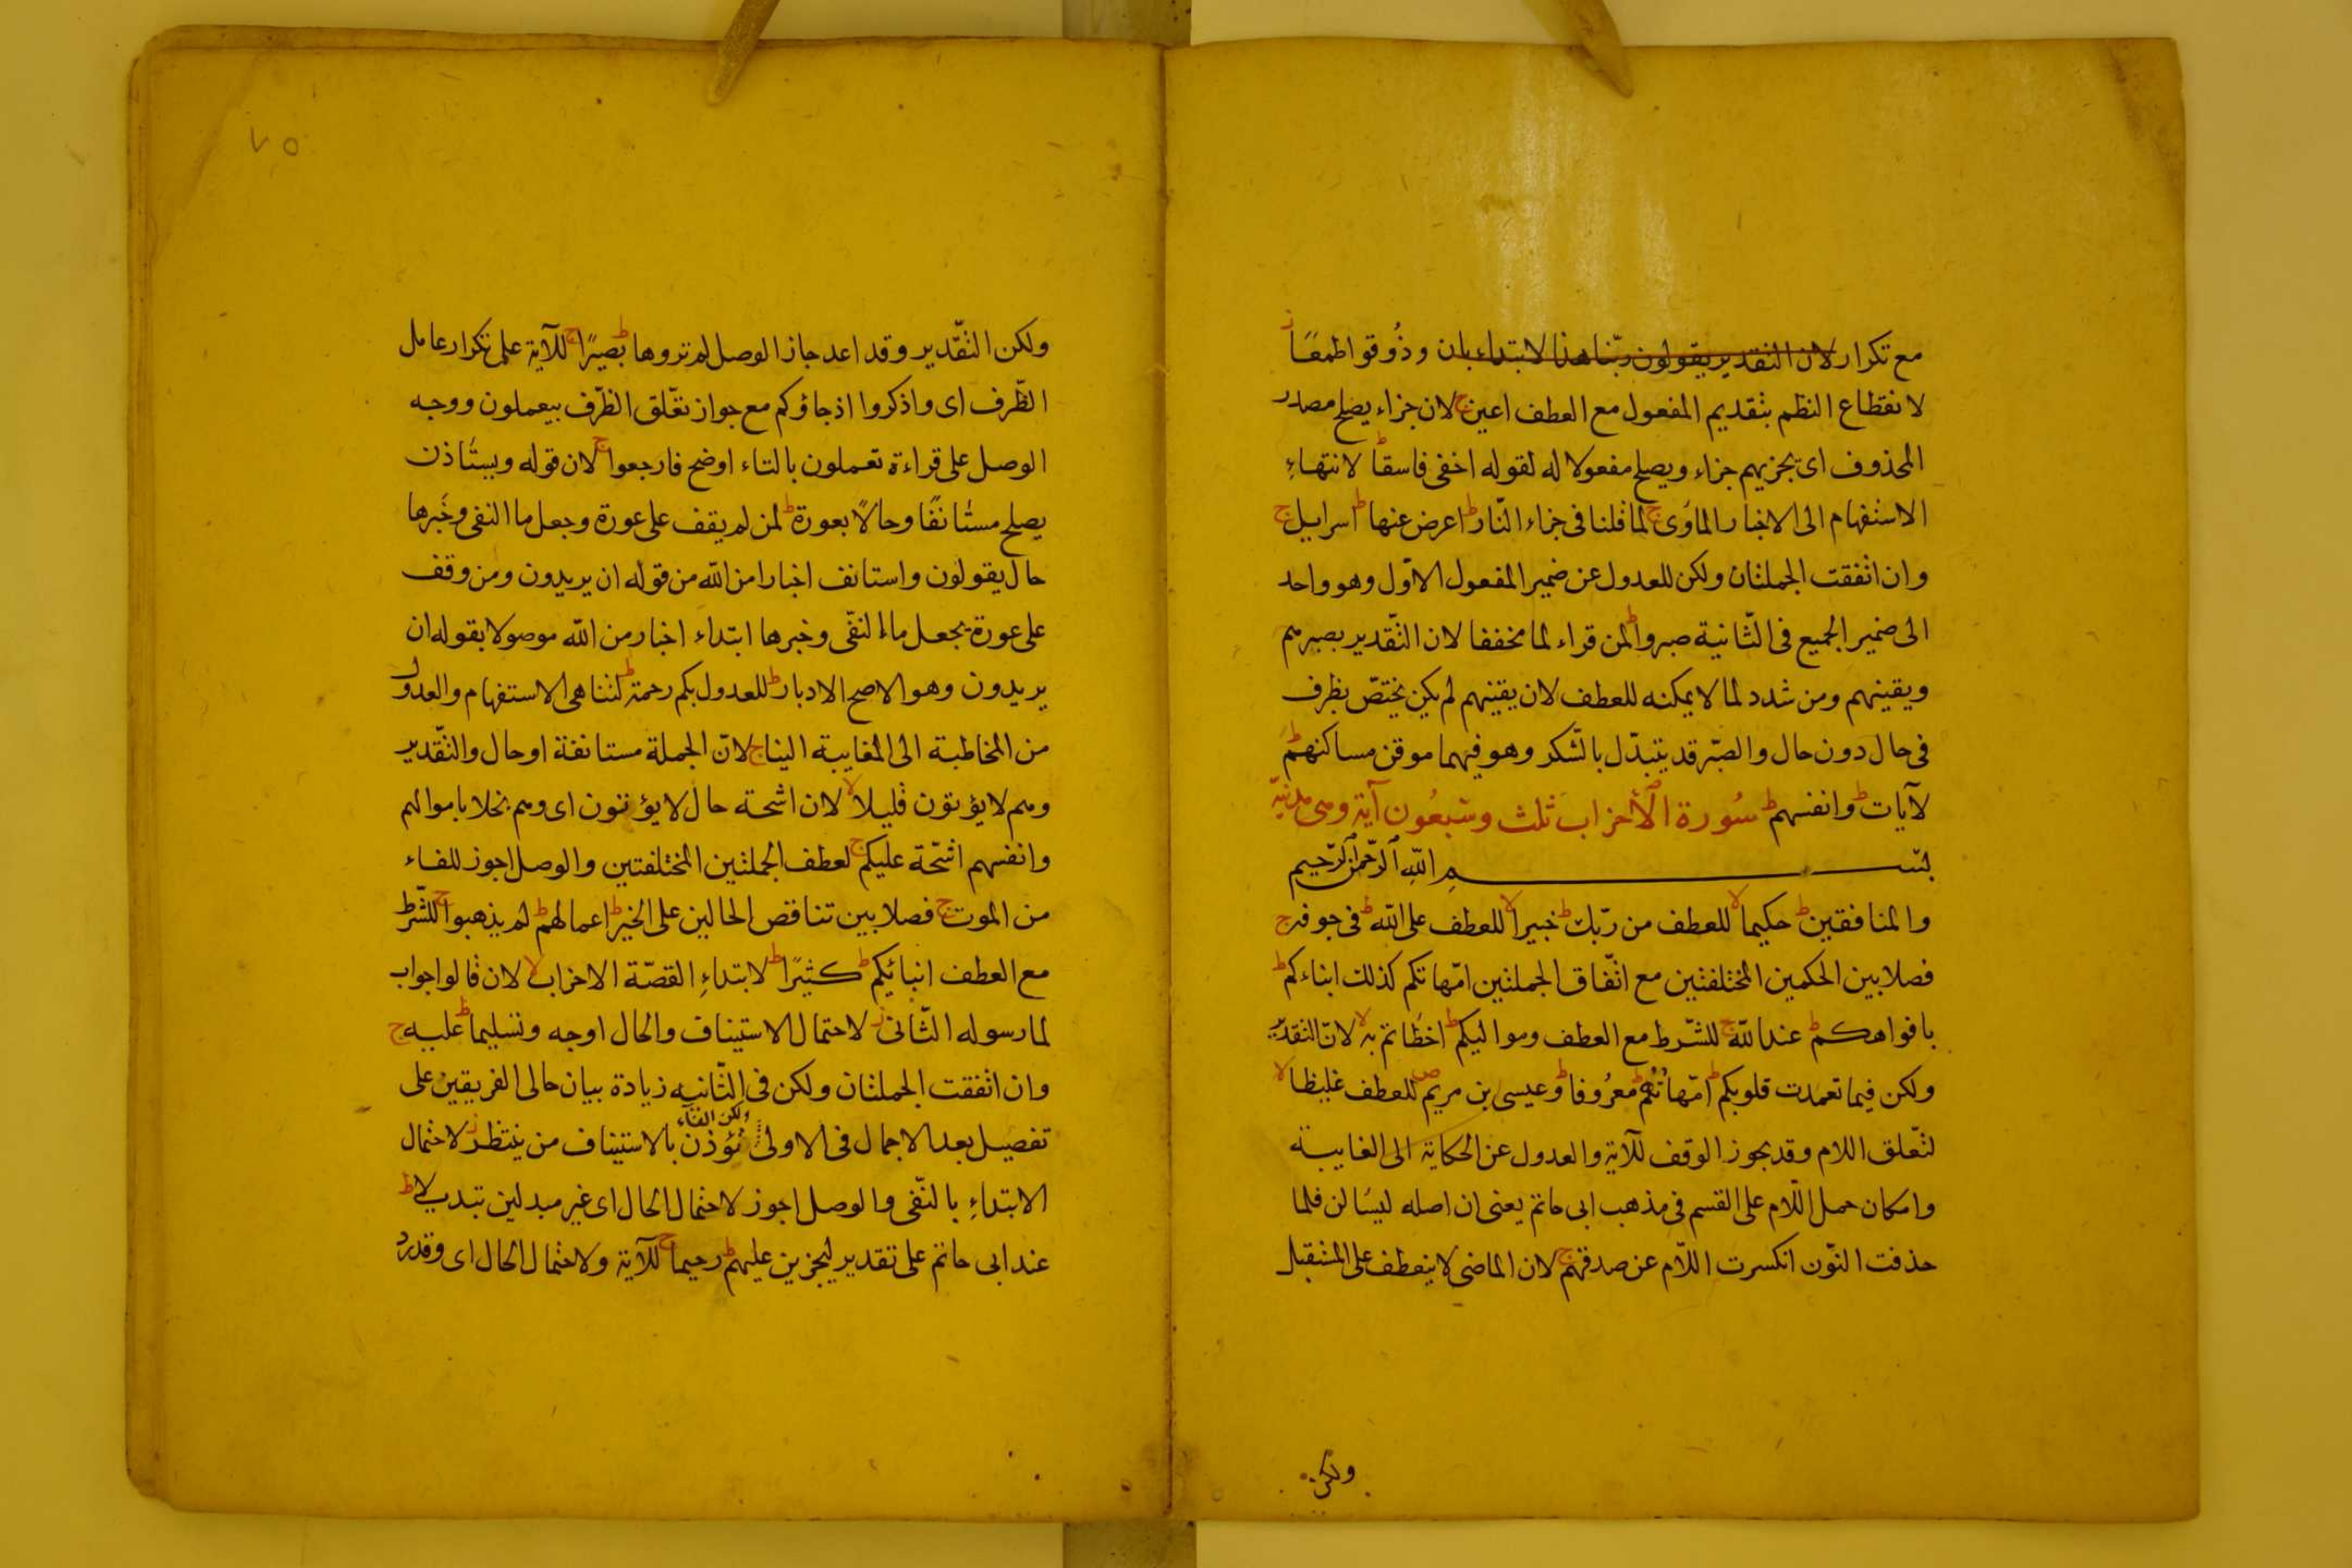 مع تكرار لان التقدير يقولون ربّنا هذا لابتداء بان وذُوقوا طمعًا ز
لانقطاع النظم بتقديم المفعول مع العطف اعين ج لان جزاء يصلح مصدر
المحذوف اى يجزيهم جزاء ويصلح مفعولا له لقوله اخفى فاسقا ط لانتهاءِ
الاستفهام الى الاخبار الماوٰى ج لما قلنا فى جزاء النّار ط اعرض عنها ط اسرايل ج
وان اتفقت الجملتان ولكن للعدول عن ضمير المفعول الاوّل وهو واحد
الى ضمير الجميع فى الثّانية صبروا ط لمن قراء لما مخففا لان التّقدير بصبرهم
ويقينهم ومن شدد لما لا يمكنه للعطف لان يقينهم لم يكن يختصّ بظرف
فى حال دون حال والصبّر قد يتبدّل بالشّكر وهو فيهما موقن مساكنهم ط
لآيات ط وانفسهم ط سُورة الأحزاب ثلث وسَبعُون آية وهى مدنيّة
بسم اللهِ الرّحمن الرّحيم
والمنافقين ط حكيما لا للعطف من رّبك ط خبيرا لا للعطف على الله ط فى جوفه ج
فصلا بين الحكمين المختلفتين مع اتّفاق الجملتين امّهاتكم كذلك ابناءكم ط
بافواهكم ط عند اللّه ج للشّرط مع العطف ومواليكم ط اخطاتم به لا لانّ التقدير
ولكن فيما تعمدت قلوبكم ط امّهاتُهُم ط معرُوفا ط وعيسى بن مريم ص للعطف غليظا لا
لتّعلق اللام وقد يجوز الوقف للآية والعدول عن الحكاية الى الغايبة
وامكان حمل اللّام على القسم فى مذهب ابى حاتم يعنى ان اصله ليسَالن فلما
حذفت النّون انكسرت اللّام عن صدقهم ج لان الماضى لا ينعطف على المستقبل
ولكن
٧٥
ولكن التّقدير وقد اعد جاز الوصل لم تروها ط بصيرًا ج للآية على تكرار عامل
الظّرف اى واذكروا اذ جاؤكم مع جواز تعّلق الظّرف بيعملون ووجه
الوصل على قراءة تعملون بالتاء اوضح فارجعوا ج لان قوله ويستَاذن
يصلح مستانفًا وحالًا بعورة ط لمن لم يقف على عورة وجعل ما النفى وخَبرها
حال يقولون واستانف اخبارا من الله من قوله ان يريدون ومن وقف
على عورة يجعل ما النفّى وخبرها ابتداء اخبار من الله موصولا بقوله ان
يريدون وهو الاصح الادبار ط للعدول بكم رحمة ط لتناهى الاستفهام والعدول
من المخاطبة الى المغايبة الينا ج لانّ الجملة مستانفة او حال والتّقدير
وهم لا يؤتون قليلا لا لان اشحة حال لا يؤتون اى وهم بخلا باموالهم
وانفسهم اشّحة عليكم ج لعطف الجملتين المختلفتين والوصل اجوز للفاء
من الموت ج فصلا بين تناقض الحالين على الخير ط اعمالهم ط لم يذهبوا ج للشّرط
مع العطف انبائيكم ط كثيرًا ط لابتداءِ القصّة الاحزاب لا لان قالوا جواب
لما رسوله الثّانى ز لاحتمال الاستيناف والحال اوجه وتسليما ط عليه ج
وان اتفقت الجملتان ولكن فى الثّانيه زيادة بيان حالى الفريقين على
تفصيل بعد الاجمال فى الاولى ولكن الفآء تُؤذن بالاستيناف من ينتظر ز لاحتمال
الابتداءِ بالنّفى والوصل اجوز لاحتمال الحال اى غير مبدلين تبديلا ط
عند ابى حاتم على تقدير ليجزين عليهم ط رحيما ج للآية ولاحتمال الحال اى وقد رد